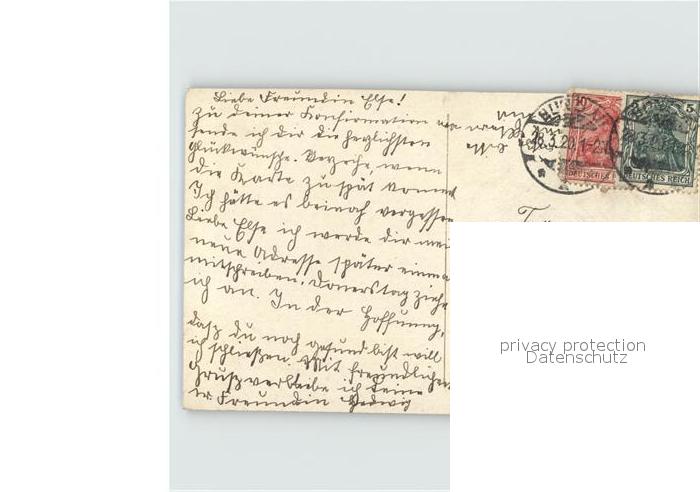 Liebe Freundin Else!
Zu deiner Konfirmation
sende ich dir die herzlichsten
Glückwünsche. Verzeihe, wenn
die Karte zu spät kommt
Ich hätte es beinah vergessen
Liebe Else ich werde dir mei
neue Adresse später einma
mitschreiben. Donerstag ziehe
ich an. In der Hoffnung,
dasz du noch gesund bist will
ich schließen. Mit freundlichem
Grusz verbleibe ich deine
Freundin Hedwig
10
5
20.1-2
DEUTSCHES
DEUTSCHES REICH
privacy protection
Datenschutz